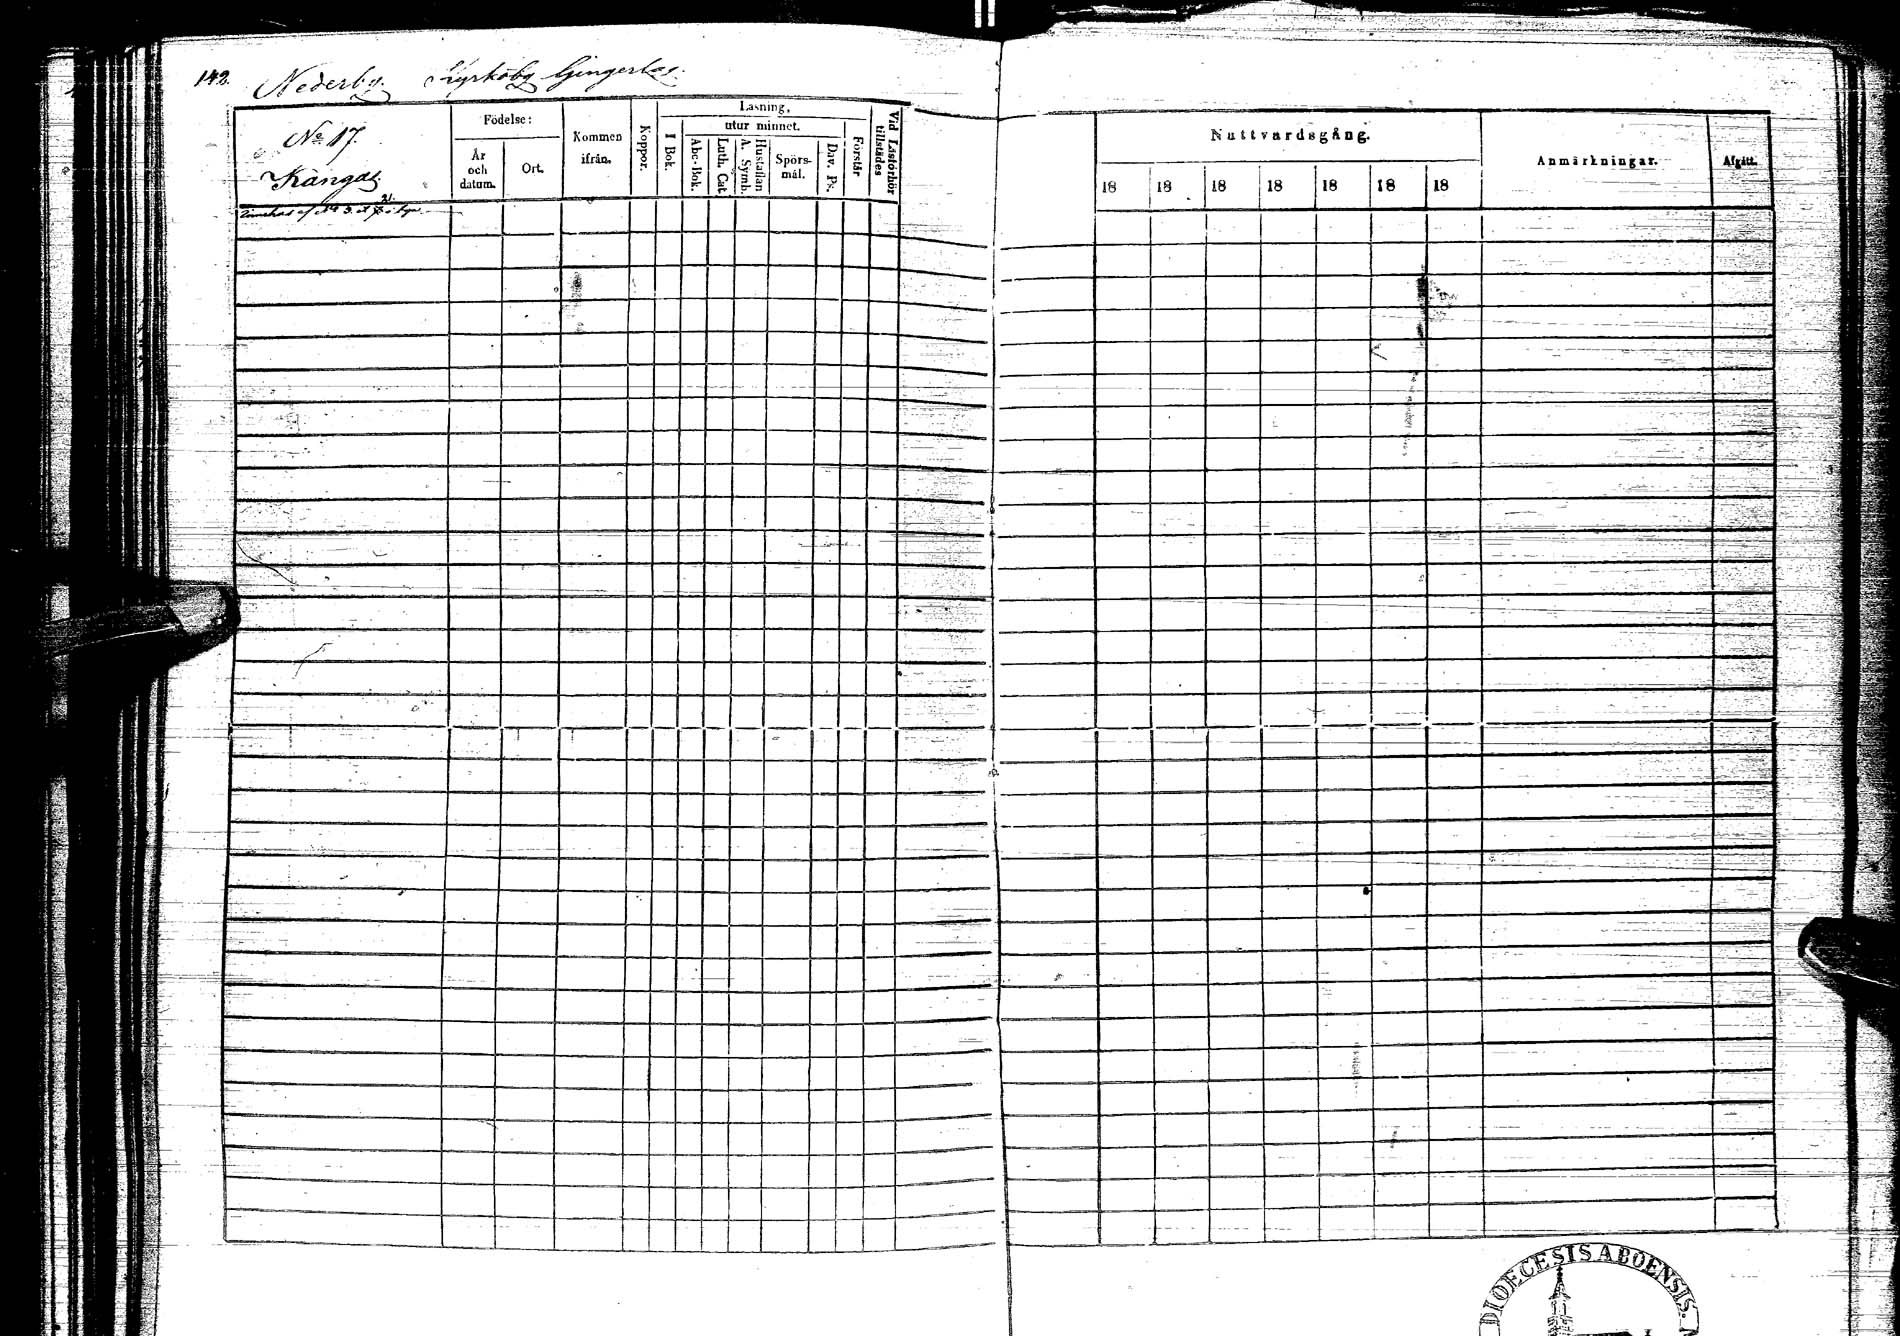 142. Nederby. Kyrkoby
No 17.
Kangas
Födelse:
År och datum.
Ort.
Kommen ifrån.
Koppor.
Läsning,
I Bok.
utur minnet.
Abc-Bok.
Luth. Cat.
Hustaflan A. Symb.
Spörs-
mål.
Dav. Ps.
Förstår
Vid Läsförhör tillstädes
Nattvardsgång.
18 18 18 18 18 18 18
Anmärkningar.
Afgått.
DIOECESIS ABOENSIS.